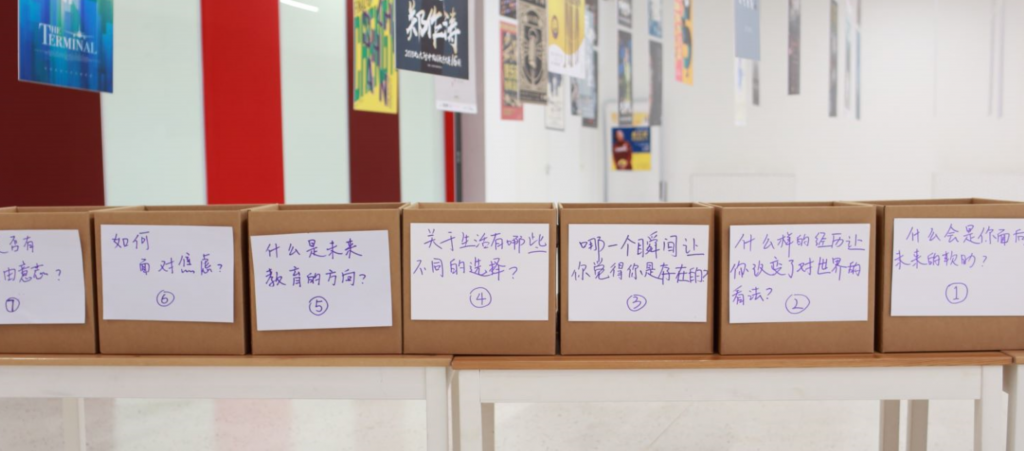 THE
TERMINAL
否有
由意志?
⑦
如何
面对焦虑?
⑥
什么是未来
教育的方向?
⑤
关于生活有哪些
不同的选择?
④
哪一个瞬间让
你觉得你是存在的?
③
什么样的经历让
你改变了对世界的
看法?
②
什么会是你面向
未来的
①